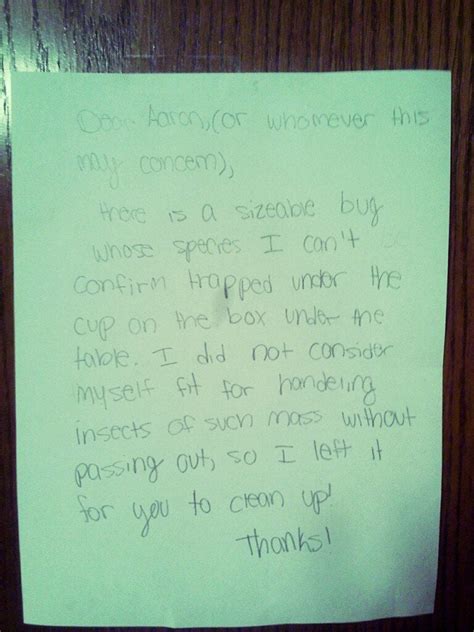 Dear Aaron, (or whomever this
may concern),
there is a sizeable bug
whose species I can't
confirm trapped under the
cup on the box under the
table. I did not consider
myself fit for handeling
insects of such mass without
passing out, so I left it
for you to clean up!
Thanks!